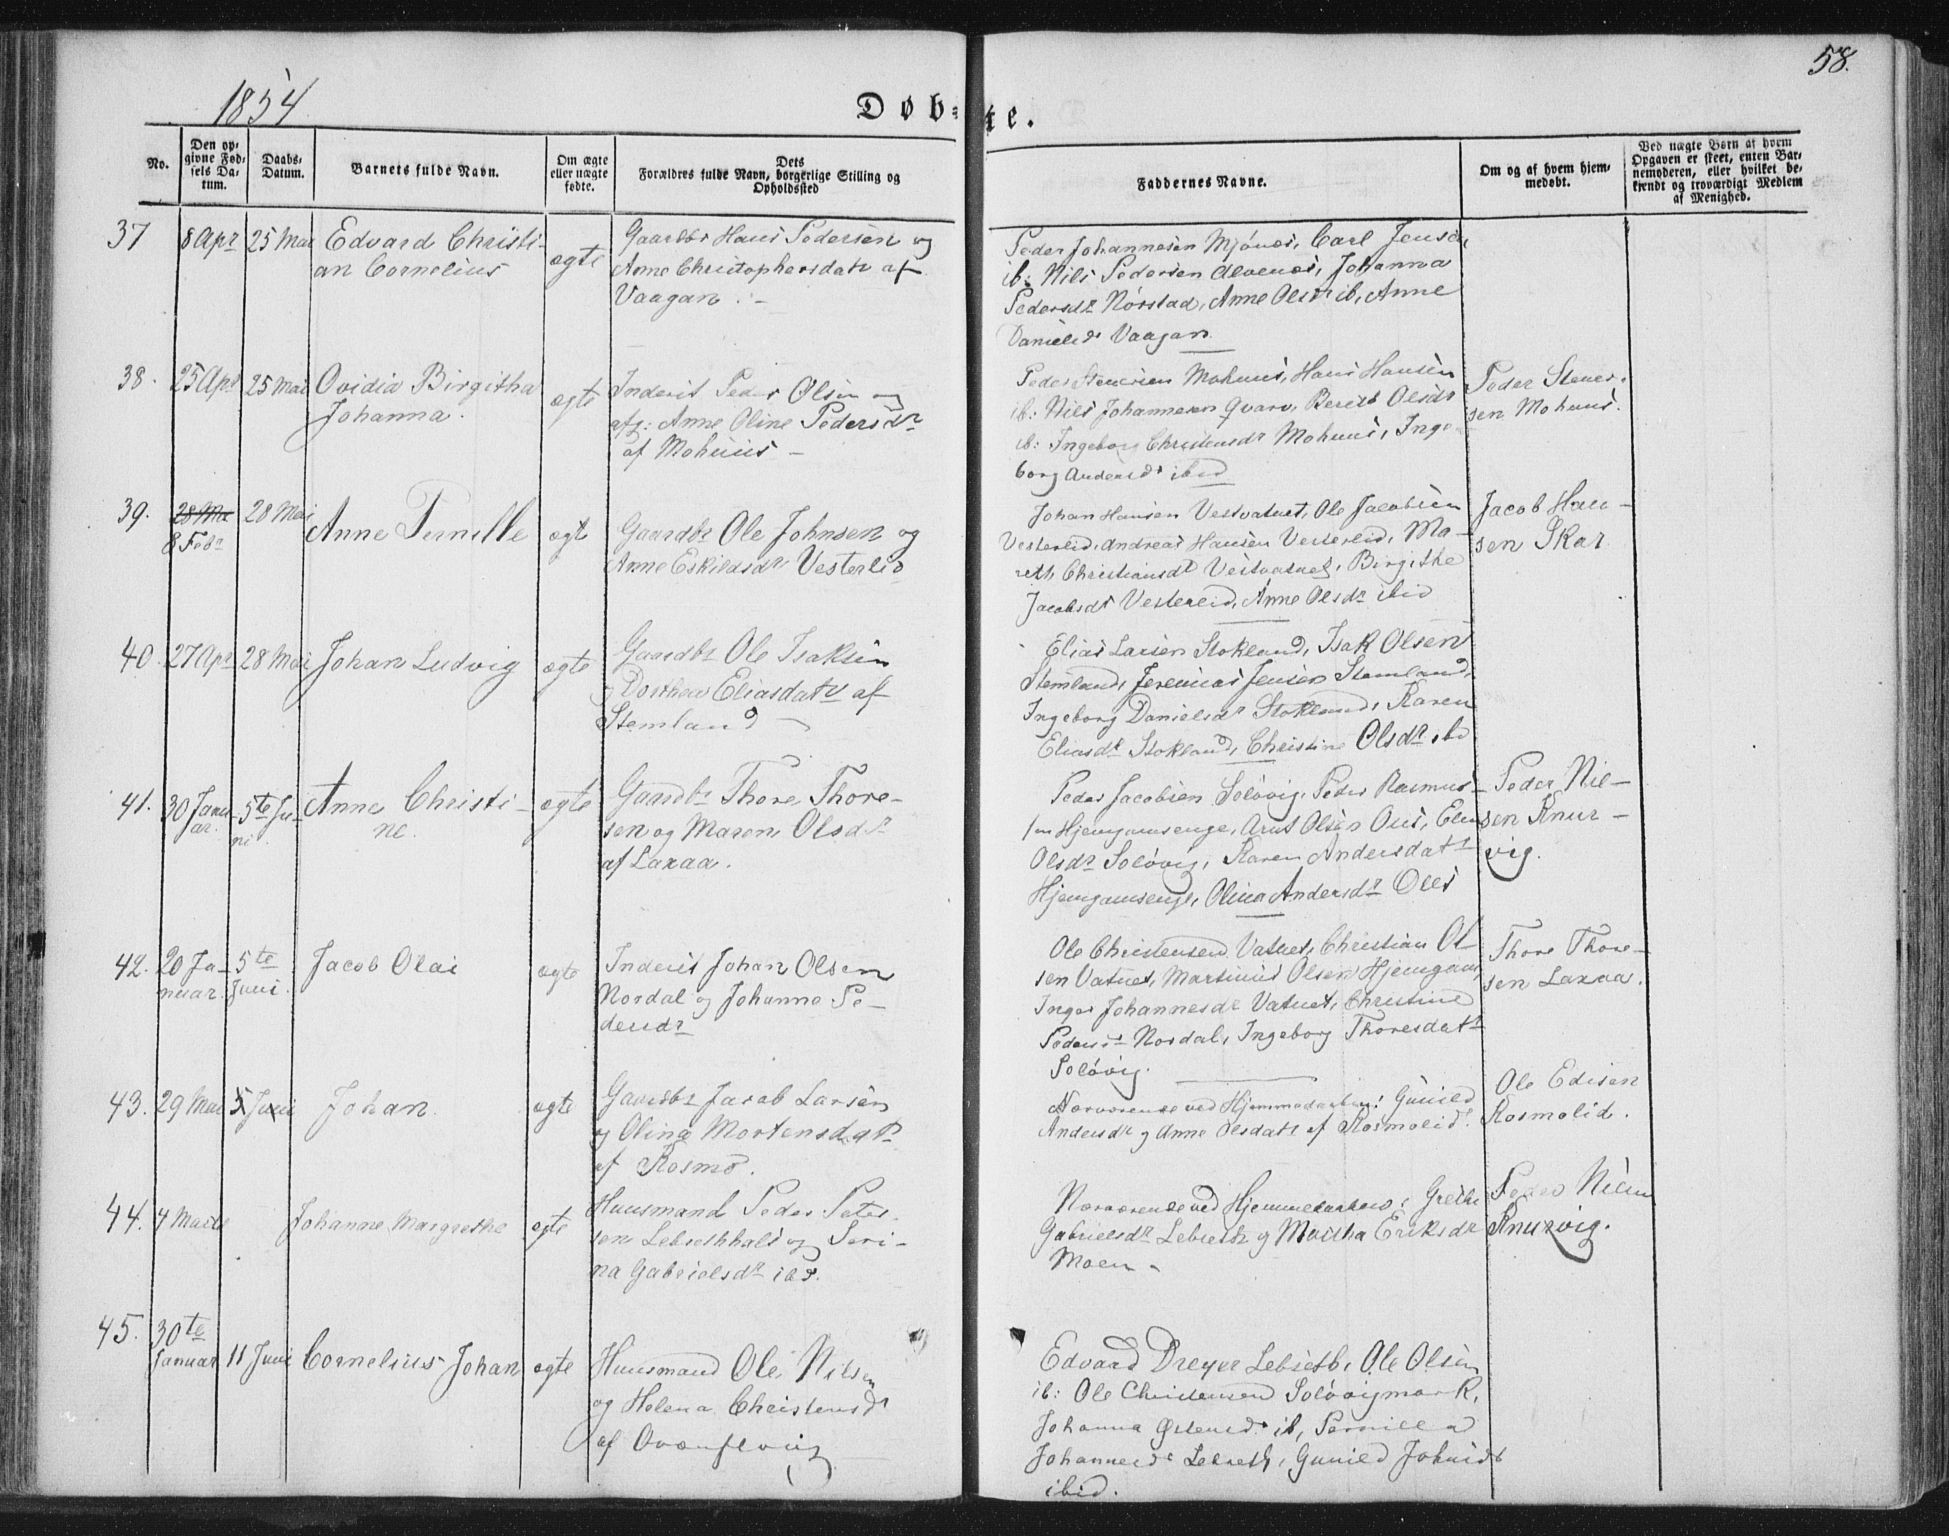 58.
1854
Døb=
te.
No.
Den op-
givne Fød-
sels Da-
tum.
Daabs-
Datum.
Barnets fulde Navn.
Om ægte
eller uægte
fødte.
Dets
Forældres fulde Navn, borgerlige Stilling og
Opholdssted
Faddernes Navne.
Om og af hvem hjem-
medøbt.
Ved uægte Børn af hvem
Opgaven er skeet, enten Bar-
nemoderen, eller hvilket be-
kjendt og troværdigt Medlem
af Menighed.
37
8 Apr
25 Mai
Edvard Christi-
an Cornelius
ægte
Gaardbr Hans Pedersen og
Anne Christophersdatr af
Vaagan.
Peder Johannesen Mjönæs, Carl Jensen
ib: Nils Pedersen Alvenæs, Johanna
Pedersdr Nörstad, Anne Olsdr ib, Anne
Danielsdr Vaagan.
38.
25 Apr
25 Mai
Ovidia Birgitha
Johanna.
ægte
Inderst Peder Olsen og
Anne Oline Pedersdr
af Mohuus
Peder Steuersen Mohuus, Hans Hansen
ib: Nils Johannesen Qvarv, Bereth Olsdr
ib: Ingeborg Christensdr Mohuus, Inge-
borg Andersdr ibid
Peder Steuer-
sen Mohuus.
39.
28 Mai
8 Febr
28 Mai
Anne Pernille
ægte
Gaardbr Ole Johnsen og
Anne Eskildsdr Vesterlid
Johan Hansen Vestvatnet, Ole Jacobsen
Vesterlid, Andreas Hansen Vesterlid, Ma-
reth Christiansdr Vestvatnet, Birgithe
Jacobsdr Vesterlid, Anne Olsdr ibid
Jacob Han-
sen Skar.
40.
27 Apr
28 Mai
Johan Ludvig
ægte
Gaardbr Ole Isaksen
og Dorthea Eliasdatr af
Stemland
Elias Larsen Stokland, Isak Olsen
Stemland, Jeremias Jensen Stemland,
Ingeborg Danielsdr Stokland, Karen
Eliasdr Stokland, Christine Olsdr ibd
41.
30 Janu-
ar.
5te Ju-
ni.
Anne Christi-
ne.
ægte
Gaardbr Thore Thore-
sen og Maren Olsdr
af Laxaa.
Peder Jacobsen Solövig, Peder Rasmus-
sen Hjemgamsenge, Arnt Olsen Ous, Elen
Olsdr Solövig, Karen Andersdatr
Hjemgamsenge, Olina Andersdr
Peder Niel-
sen Knur-
vig.
42.
20 Ja-
nuar.
5te
Juni.
Jacob Olai
ægte
Inderst Johan Olsen
Nordal og Johanna Pe-
dersdr
Ole Christensen Vatnet, Christian Ol-
sen Vatnet, Martinus Olsen Hjemgam,
Inger Johannesdr Vatnet, Christine
Pedersdr Nordal, Ingeborg Thoresdatr
Solövig.
Thore Thore-
sen Laxaa.
43.
29 Mai
5 Juni
Johan.
ægte
Gaardbr Jacob Larsen
og Olina Mortensdatr
af Rosmo.
Nærværende ved Hjemmedaaben: Gunild
Andersdr og Anne Olsdatr af Rosmolid.
Ole Edisen
Rosmolid.
44.
4 Marts
Johanne Margrethe
ægte
Huusmand Peder Peter-
sen Lebsethhals og Seri-
na Gabrielsdr ibd.
Nærværende ved Hjemmedaaben: Grethe
Gabrielsdr Lebseth og Martha Eriksdr
Moen
Peder Nilsen
Knurvig.
45.
30te
Januar
11 Juni
Cornelius Johan
ægte
Huusmand Ole Nilsen
og Helena Christensdr
af
Edvard Dreyer Lebseth, Ole Olsen
ib: Ole Christensen Solövigmark,
Johanna Østensdr ib, Pernilla
Johannesdr Lebseth, Gunild Johnsdr
ibid.